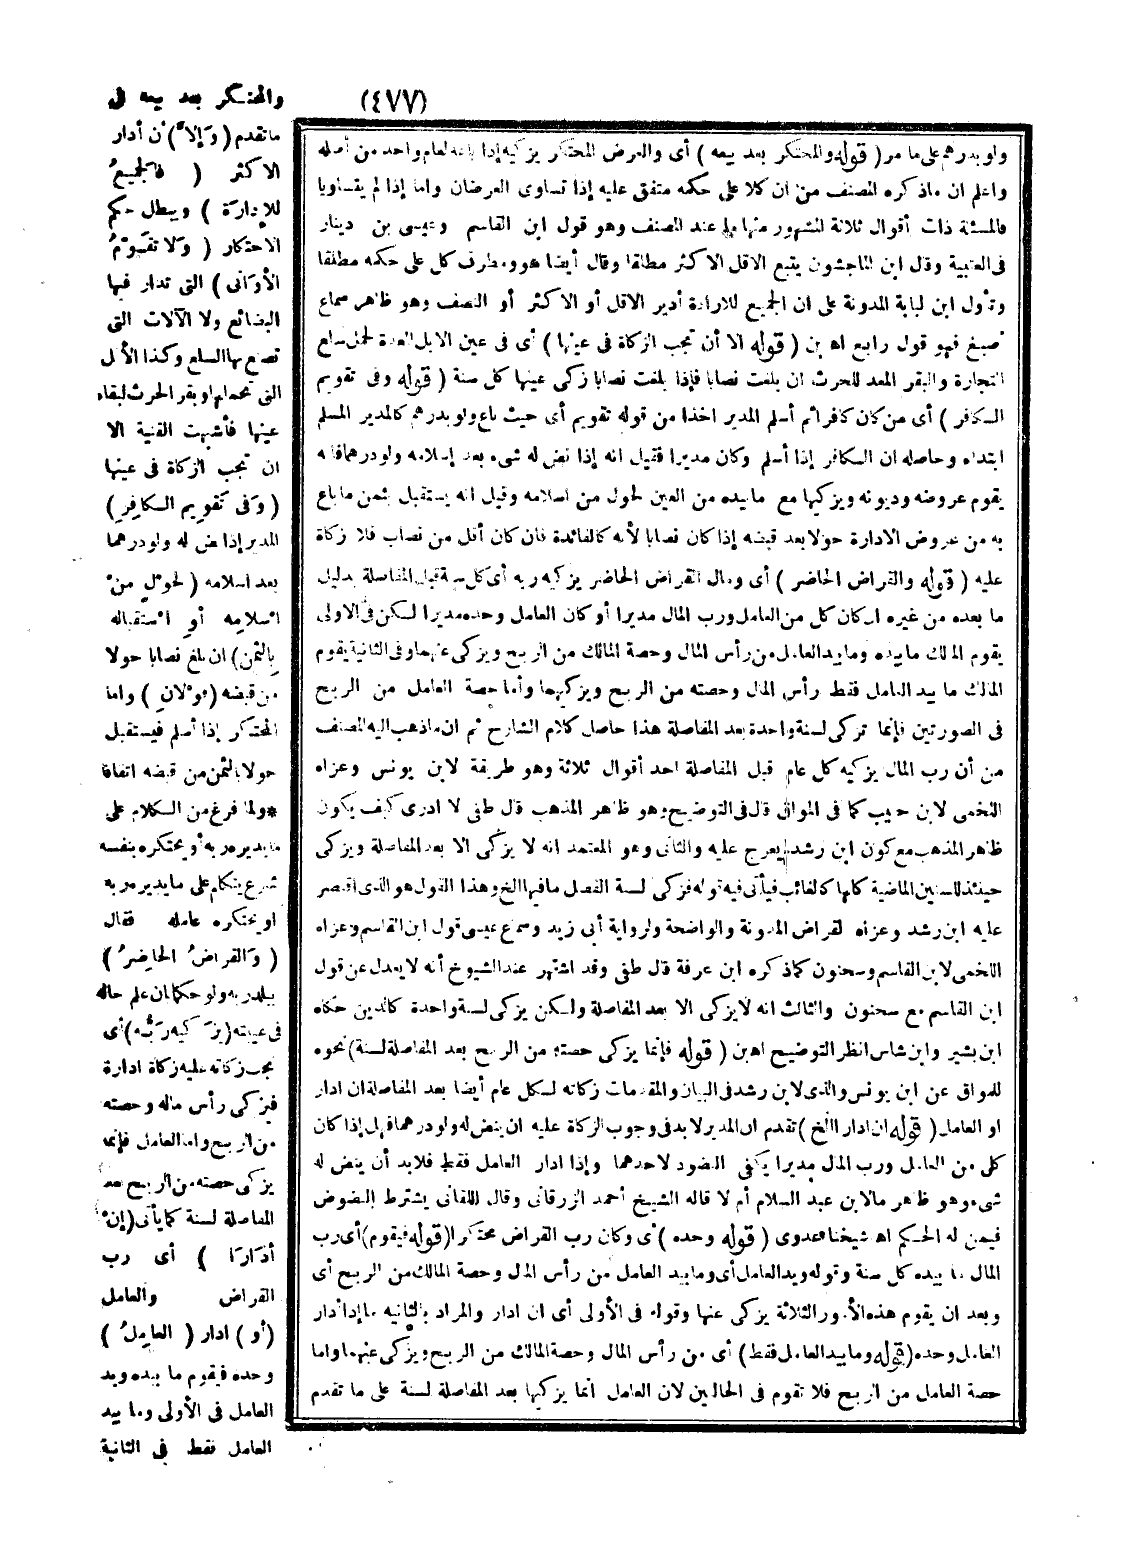 (٤٧٧)
ولو بدرهم على ما مر ( قوله والمحتكر بعد بيعه ) أى والعرض المحتكر يزكيه إذا باعه لعام واحد من أصله
واعلم ان ماذكره المصنف من ان كلا على حكمه متفق عليه إذا تساوى العرضان واما إذا لم يتساويا
فالمسئلة ذات أقوال ثلاثة المشهور منها ما عند المصنف وهو قول ابن القاسم وعيسى بن دينار
فى العتبية وقال ابن الماجشون يتبع الاقل الاكثر مطلقا وقال أيضا هو ومطرف كل على حكمه مطلقا
وتأول ابن لبابة المدونة على ان الجميع للادارة أدير الاقل أو الاكثر أو النصف وهو ظاهر سماع
أصبغ فهو قول رابع اه بن ( قوله الا أن تجب الزكاة فى عينها ) أى فى عين الابل المعدة لحمل سلع
التجارة والبقر المعد للحرث ان بلغت نصابا فإذا بلغت نصابا زكى عينها كل سنة ( قوله وفى تقويم
الكافر ) أى من كان كافرا ثم أسلم المدير اخذا من قوله تقويم أى حيث باع ولو بدرهم كالمدير المسلم
ابتداء وحاصله ان الكافر إذا أسلم وكان مديرا فقيل انه إذا نض له شىء بعد إسلامه ولو درهما فانه
يقوم عروضه وديونه ويزكيها مع ما بيده من العين لحول من اسلامه وقيل انه يستقبل بثمن ما باع
به من عروض الادارة حولا بعد قبضه إذا كان نصابا لأنه كالفائدة فان كان أقل من نصاب فلا زكاة
عليه ( قوله والقراض الحاضر ) أى ومال القراض الحاضر يزكيه ربه أى كل سنة قبل المفاصلة بدليل
ما بعده من غيره ان كان كل من العامل ورب المال مديرا أو كان العامل وحده مديرا لكن فى الاولى
يقوم المالك ما بيده وما بيد العامل من رأس المال وحصة المالك من الربح ويزكى عنهما وفى الثانية يقوم
المالك ما بيد العامل فقط رأس المال وحصته من الربح ويزكيهما وأما حصة العامل من الربح
فى الصورتين فإنما تزكى لسنة واحدة بعد المفاصلة هذا حاصل كلام الشارح ثم ان ماذهب اليه المصنف
من أن رب المال يزكيه كل عام قبل المفاصلة احد أقوال ثلاثة وهو طريقة لابن يونس وعزاه
اللخمى لابن حبيب كما فى المواق قال فى التوضيح وهو ظاهر المذهب قال طفى لا ادرى كيف يكون
ظاهر المذهب مع كون ابن رشد لم يعرج عليه والثانى وهو المعتمد انه لا يزكى الا بعد المفاصلة ويزكى
حينئذ للسنين الماضية كلها كالغائب فيأتى فيه قوله فزكى لسنة الفصل مافيها الخ وهذا القول هو الذى اقتصر
عليه ابن رشد وعزاه لقراض المدونة والواضحة ولرواية أبى زيد وسماع عيسى قول ابن القاسم وعزاه
اللخمى لابن القاسم وسحنون كما ذكره ابن عرفة قال طفى وقد اشتهر عند الشيوخ أنه لا يعدل عن قول
ابن القاسم مع سحنون والثالث انه لايزكى الا بعد المفاصلة ولكن يزكى لسنة واحدة كالدين حكاه
ابن بشير وابن شاس انظر التوضيح اه بن ( قوله فإنما يزكى حصته من الربح بعد المفاصلة لسنة ) نحوه
للمواق عن ابن يونس والذى لابن رشد فى البيان والمقدمات زكاته لكل عام أيضا بعد المفاصلة ان ادار
او العامل ( قوله ان ادار االخ ) تقدم ان المدير لابد فى وجوب الزكاة عليه ان ينض له ولو درهما فهل إذا كان
كل من العامل ورب المال مديرا يكفى النضود لاحدهما وإذا ادار العامل فقط فلابد أن ينض له
شىء وهو ظاهر مالابن عبد السلام أم لا قاله الشيخ أحمد الزرقانى وقال اللقانى يشترط النضوض
فيمن له الحكم اه شيخنا عدوى ( قوله وحده ) أى وكان رب القراض محتكرا ( قوله فيقوم ) أى رب
المال ما بيده كل سنة وقوله وبيد العامل أى وما بيد العامل من رأس المال وحصة المالك من الربح أى
وبعد ان يقوم هذه الأمور الثلاثة يزكى عنها وقوله فى الأولى أى ان ادار والمراد بالثانيه ما إدا أدار
العامل وحده ( قوله وما بيد العامل فقط ) أى من رأس المال وحصة المالك من الربح ويزكى عنهما واما
حصة العامل من الربح فلا تقوم فى الحالين لان العامل انما يزكيها بعد المفاصلة لسنة على ما تقدم
والمحتكر بعد بيعه فى
ماتقدم ( وَإلاَّ ) أن أدار
الاكثر ( فالجميعُ
للإدارَة ) ويبطل حكم
الاحتكار ( وَلا تقوّمُ
الأوَانى ) التى تدار فيها
البضائع ولا الآلات التى
تصنع بها السلع وكذا الأبل
التى تحملها وبقر الحرث لبقاء
عينها فأشبهت القنية الا
ان تجب الزكاة فى عينها
( وَفى تقويم الكافرِ )
المدير إذا نض له ولو درهما
بعد اسلامه ( لحوْلٍ منْ
إسْلامِه أوِ اسْتقباله
بالثمنِ ) ان بلغ نصابا حولا
من قبضه ( قوْلانِ ) واما
المحتكر إذا أسلم فيستقبل
حولا بالثمن من قبضه اتفاقا
*ولما فرغ من الكلام على
مايديره ربه أو يحتكره بنفسه
شرع يتكلم على ما يديره ربه
او يحتكره عامله فقال
( وَالقراضُ الحاضِرُ )
ببلد ربه ولو حكما بان علم حاله
فى غيبته ( يزَكيه رَبُّه ) أى
تجب زكاته عليه زكاة ادارة
فيزكى رأس ماله وحصته
من الربح واما العامل فإنما
يزكى حصته من الربح بعد
المفاصلة لسنة كما يأتى ( إنْ
أدَارَا ) أى رب
القراض والعامل
( أوِ ) ادار ( العامِلُ )
وحده فيقوم ما بيده وبيد
العامل فى الأولى وما بيد
العامل فقط فى الثانية